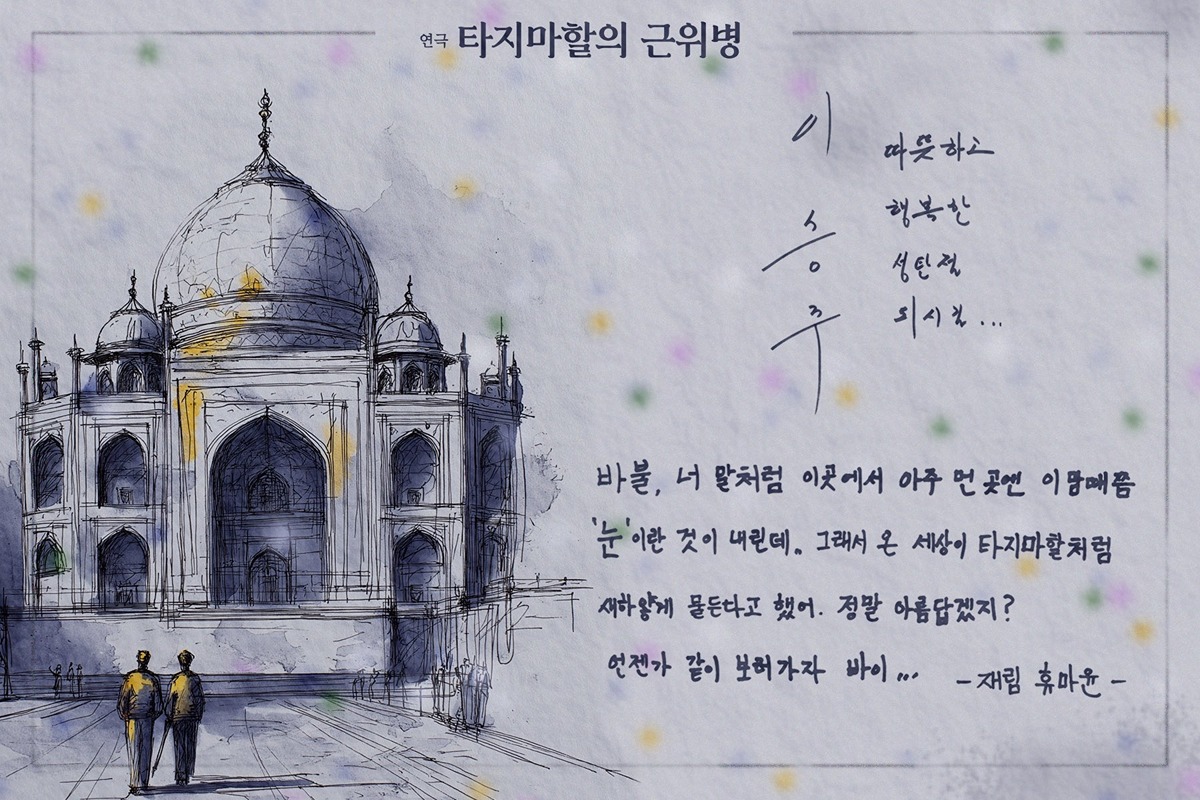 연극 타지마할의 근위병
이
승
주
따뜻하고
행복한
성탄절
되시길...
바불, 너 말처럼 이곳에서 아주 먼 곳엔 이맘때쯤
'눈'이란 것이 내린데.. 그래서 온 세상이 타지마할처럼
새하얗게 물든다고 했어. 정말 아름답겠지?
언젠가 같이 보러가자 바이...
-재림 휴마윤-